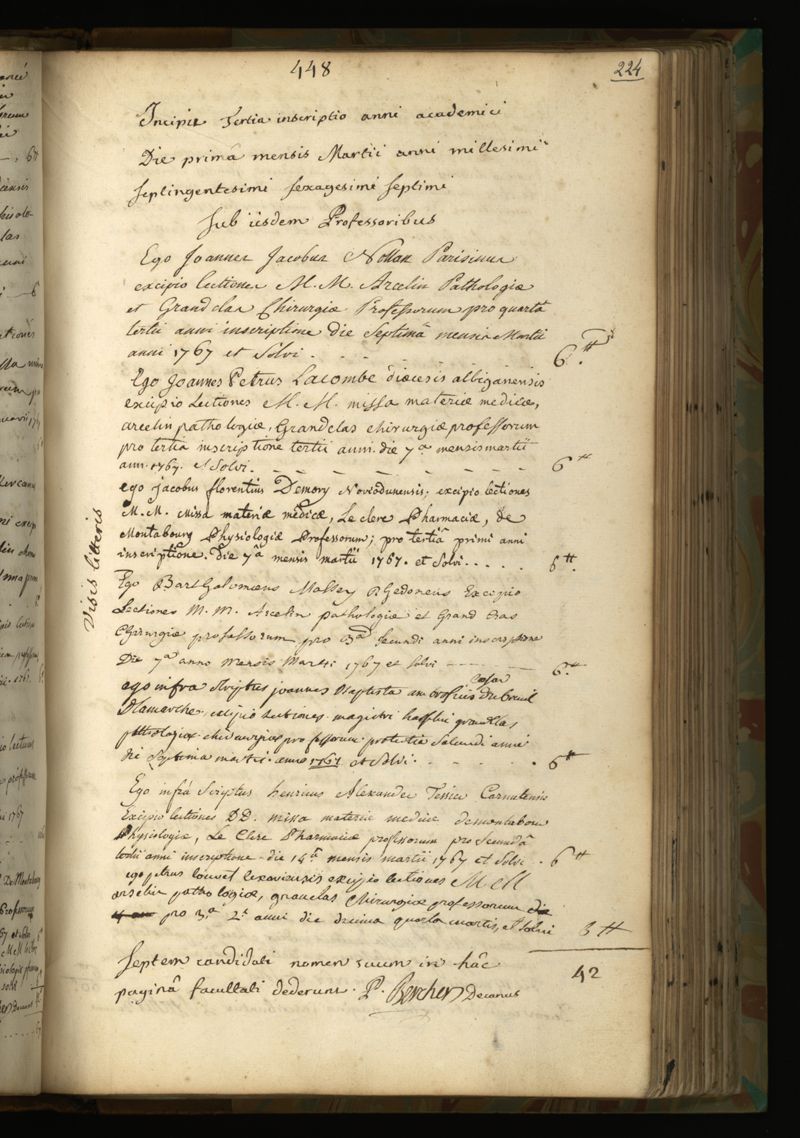 448
224
Incipit tertia inscriptio anni academici
Die primâ mensis Martii anni millesimi
septingentesimi sexagesimi septimi
sub iisdem Professoribus
Ego Joannes Jacobus Nollan Parisinus
excipio lectiones M. M. Arcelin Pathologiæ
et Grandclas Chirurgiæ Professorum pro quartâ
tertii anni inscriptione die septimâ mensis Martii
anni 1767 et solvi . . . . 6.tt
Ego Joannes Petrus Lacombe diœcesis albiganensis
excipio Lectiones M. M. missa materiæ medicæ,
arcelin pathologiæ, Grandclas chirurgiæ professorum
pro tertia inscriptione tertii anni. die 7a mensis martii
ann. 1767. et solvi. _ _ _ _ _ _ 6tt
Visis litteris
ego jacobus florentius Demory Noviodunensis, excipio lectiones
M. M. Missa materiæ medicæ, Le clerc Pharmaciæ, de
Montabourg Physiologiæ Professorum; pro tertiâ primi anni
inscriptione. Die 7â mensis martii 1767. et solvi . . . . . 6tt.
Ego Bartholomæus Massey Rhedoneus Excipio
Lectiones M. M. Arcelin pathologiæ et Grand clas
Chirurgiæ professorum pro 3a secundi anni inscriptione
Die 7a anno mensis Martii 1767 et solvi - - - - 6.tt
ego infra scriptus joannes Baptista ambrosius cæsar Dubreuil
excipio lectiones magistri grandclas
pathologiæ chirurgiæ professorum pro tertia secundi anni
die septima martii. anno 1767 et solvi. . . . . . 6tt
Ego infrá scriptus henricus Alexander Tessier Carnutensis
Excipio lectiones DD. missa materiæ medicæ demontabour
Physiologiæ, Le Clerc Pharmaciæ professorum pro secundâ
tertii anni inscriptione die 14â mensis martii 1767 et solvi . 6tt
ego petrus louvet lexoviensis excipio lectiones M et M
arselin pathologiæ, granclas chirurgiæ professorum
pro 3.a 2.i anni die decima quarta martis, et solvi 6tt
42
Septem candidati nomen suum in hâc
paginâ facultati dederunt. P. Bercher Decanus